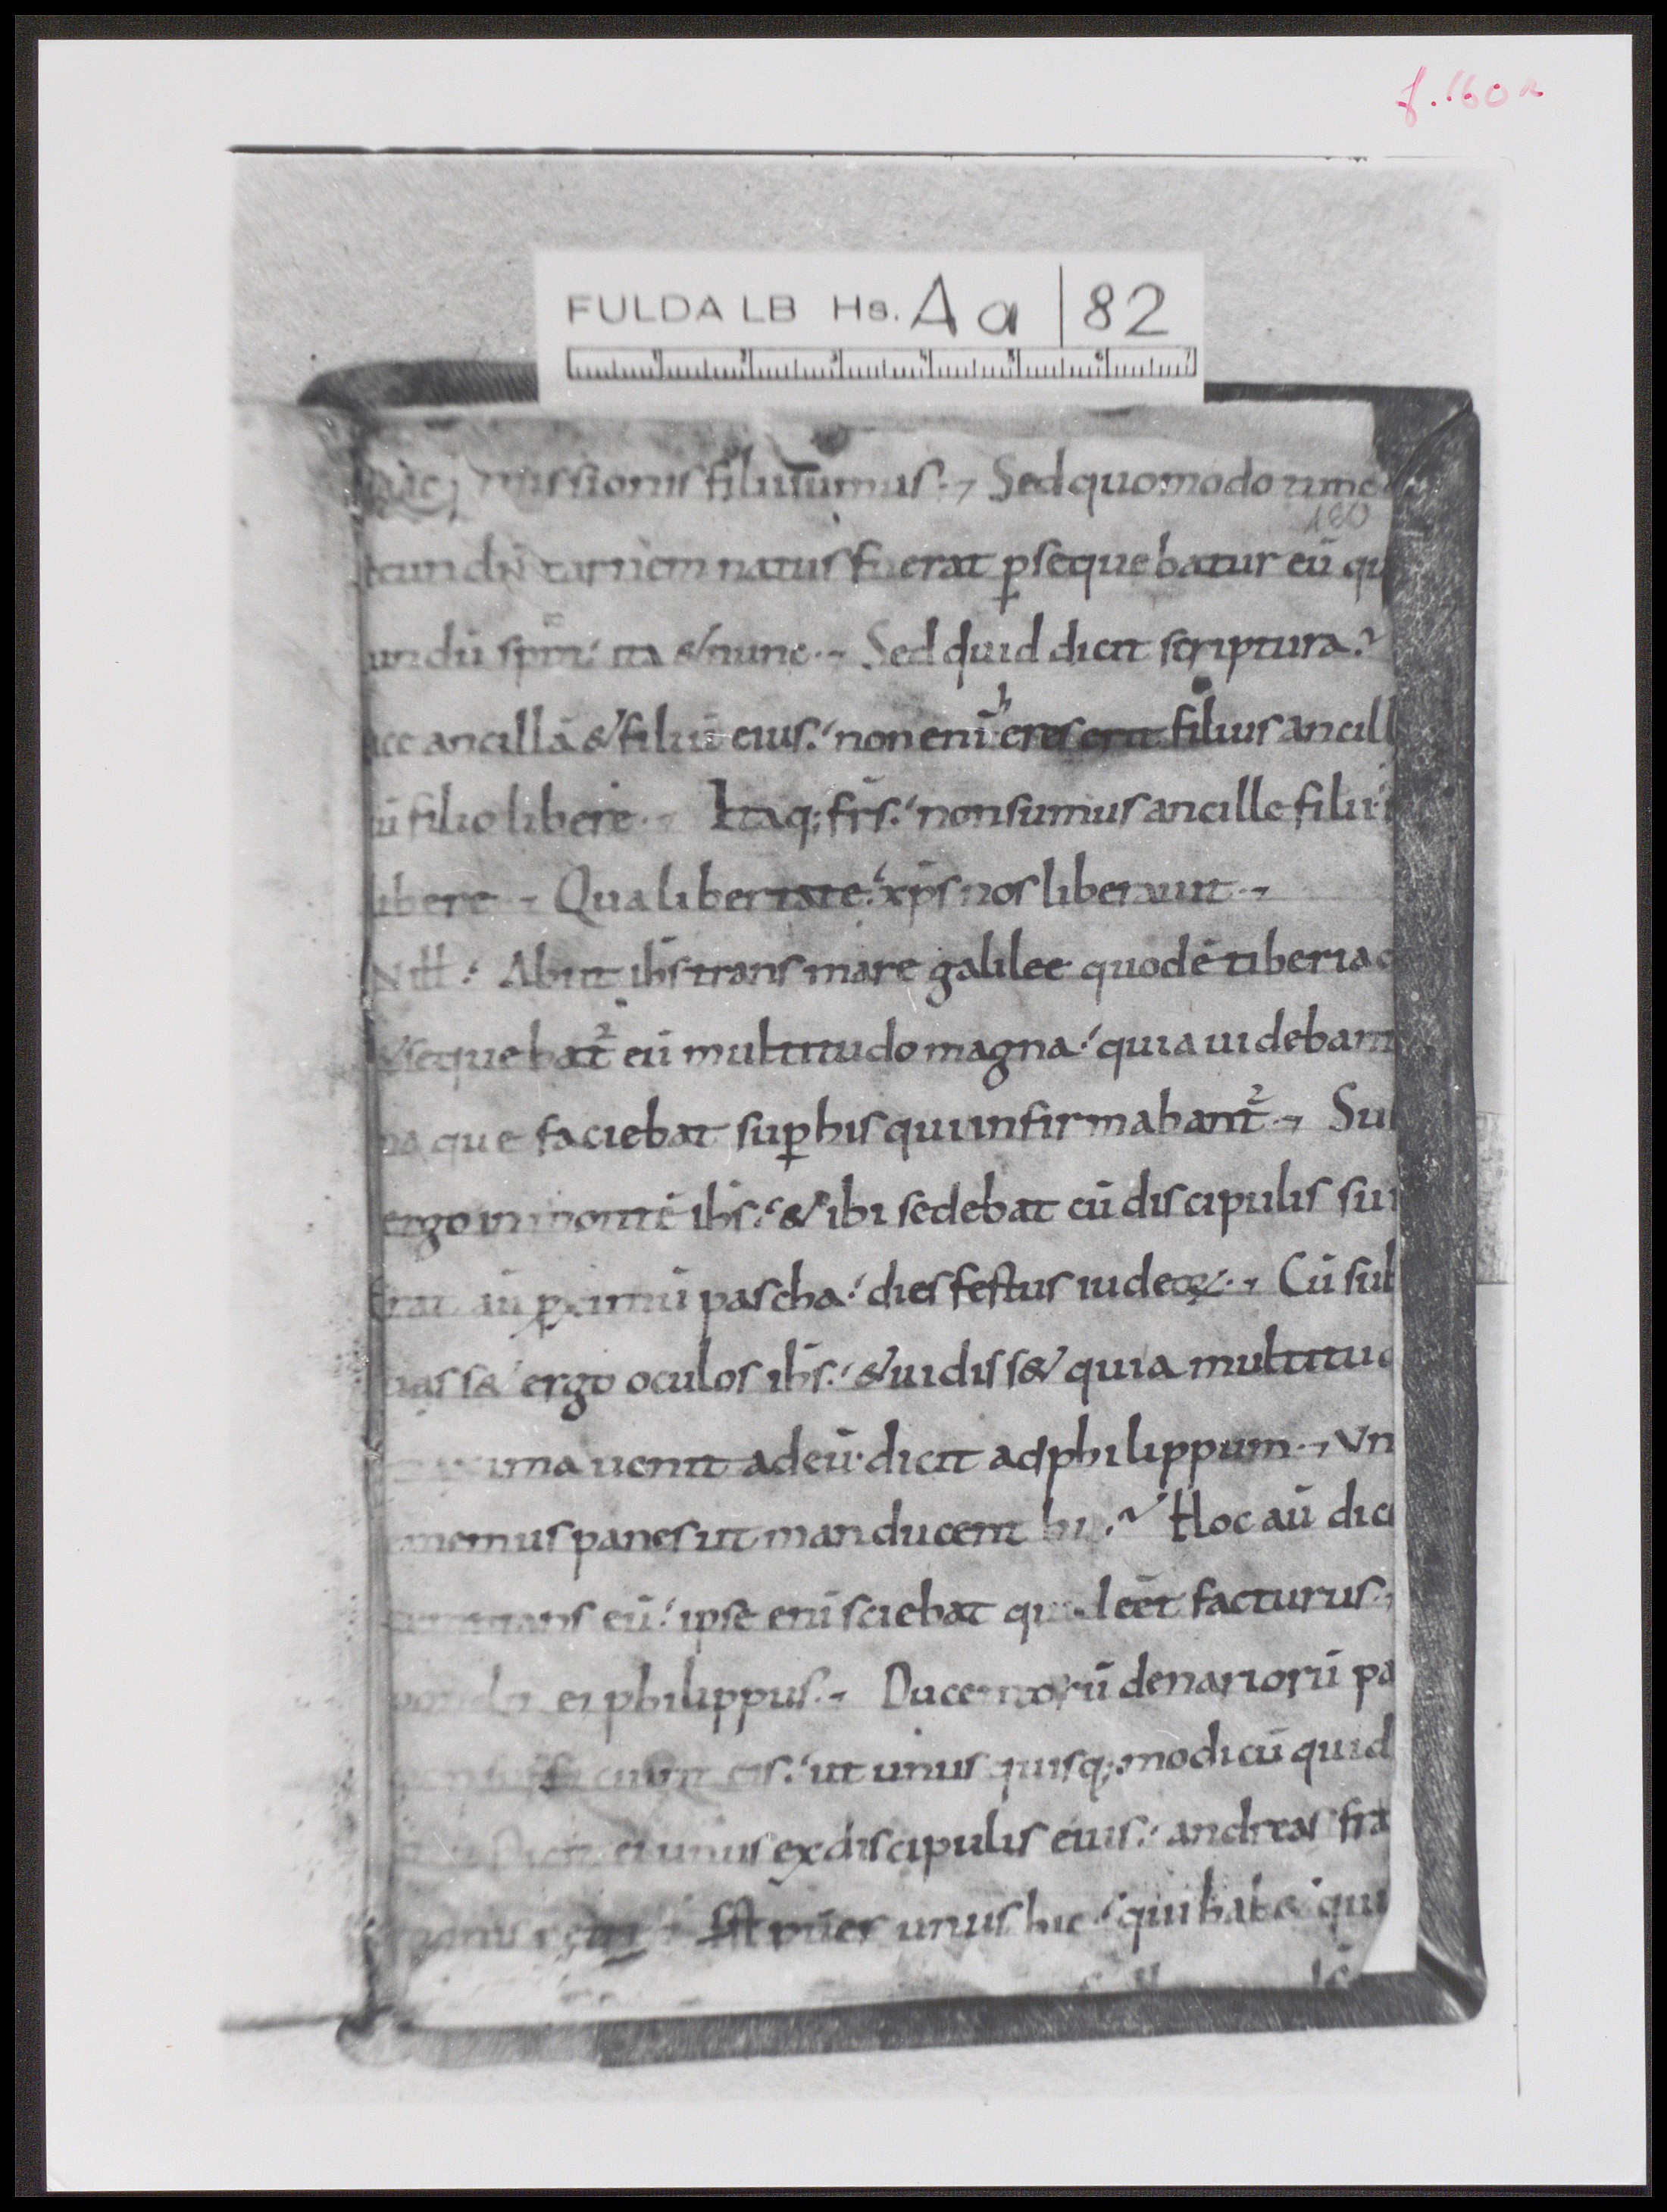 f. 160r
FULDA LB Hs. Aa | 82
missionis filii sumus. Sed quomodo tunc
160
cundũ carnem natus fuerat ꝑsequebatur eũ qu
undũ spm̃ ita & nunc. Sed quid dicit scriptura?
ice ancillã & filiũ eius. non enĩ heres erit filius ancill
ũ filio libere. Itaq; frs̃. non sumus ancille filii
libere. Qua libertate xp̃s nos liberavit.
N ill. Abiit ihs̃ trans mare galilee quod ẽ tiberiad
& sequebat² eũ multitudo magna. quia uidebant
na que faciebat suꝑ his qui infirmabant². Su
ergo in montẽ ihs̃. & ibi sedebat cũ discipulis sui
Erat aũ ꝓximũ pascha. dies festus iudeoꝝ. Cũ sub
uass& ergo oculos ihs̃. & uidiss& quia multitud
xima uenit ad eũ. dicit ad philippum. Vn
memus panes ut manducent hi? Hoc aũ dice
eũ. ipse enĩ sciebat quid eẽt facturus.
pondit ei philippus. Ducentorũ denariorũ pa
sufficiunt eis. ut unus quisq; modicũ quid
Dicit ei unus ex discipulis eius. andreas fra
Est puer unus hic. qui hab& qui